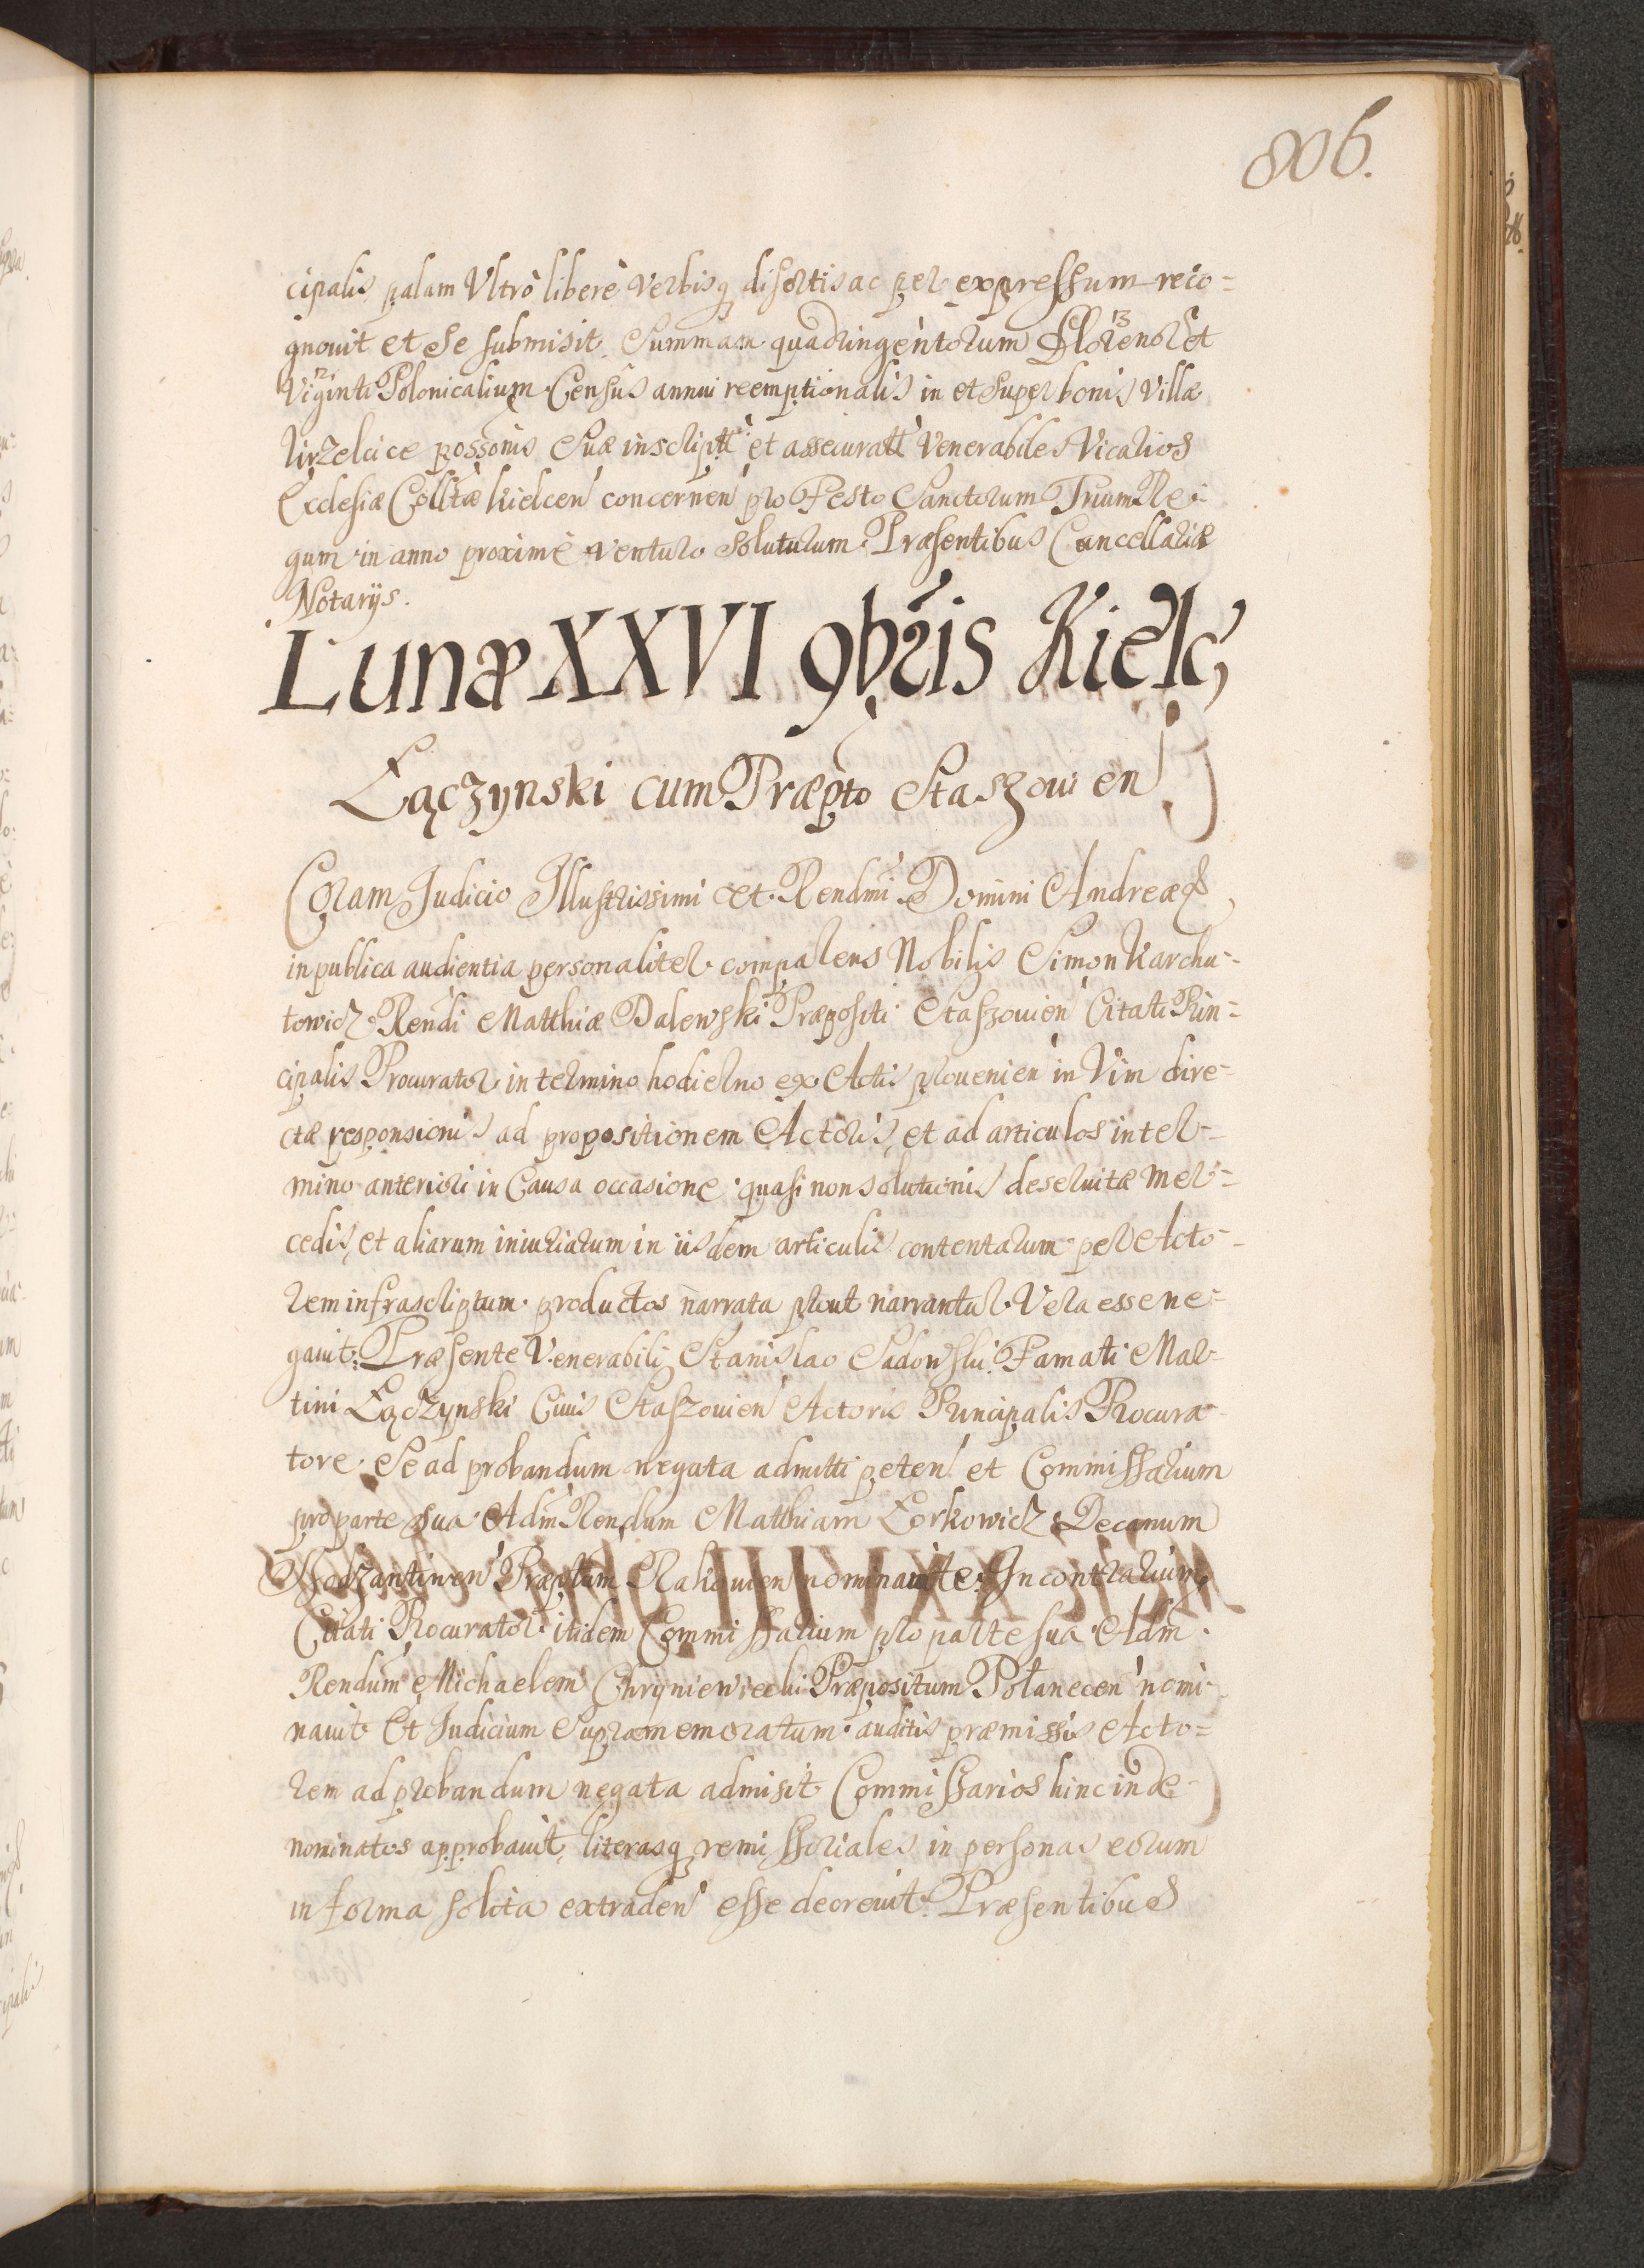 806.
cipalis palam Vltrò liberè Verbisq disertis ac per expressum reco=
gnouit et Se submisit Summam quadringentorum Florenor et
Viginti Polonicalium Censûs annui reemptionalis in et super bonis Villæ
possonis Suæ inscriptt et assecuratt Venerabiles Vicarios
Ecclesiæ Colltæ Kielcen concernen pro Festo Sanctorum Trium Re=
gum in anno proximè Venturo Soluturum. Præsentibus Cancellariæ
Notarijs.
Lunæ XXVI 9bris Kielc,
Łączynski cum Præpto Staszouien
Coram Judicio Illustrissimi et Rendmi Domini Andreæ
in publica audientia personaliter comparens Nobilis Simon Karchu=
towicz Rendi Matthiæ Dalewski Præpositi Staszouien Citati Prin=
cipalis Procurator in termino hodierno ex Actis prouenien in Vim dire=
ctæ responsionis ad propositionem Actoris, et ad articulos in ter=
mino anteriori in Causa occasione quasi non solutionis deseruitæ mer=
cedis, et aliarum iniuriarum in iisdem articulis contentarum per Acto=
rem infrascriptum productos narrata prout narrantur Vera esse ne=
gauit. Præsente Venerabili Stanislao Sadowski Famati Mar=
tini Łączynski Ciuis Staszouien Actoris Principalis Procura=
tore Se ad probandum negata admitti peten et Commissarium
pro parte sua Adm Rendum Matthiam Lorkowicz Decanum
Præptum nominante. In contrarium
Citati Procurator itidem Commissarium pro parte sua Adm
Rendum Michaelem Chryniewiecki Præpositum Połanecen nomi=
nauit Et Judicium Supramemoratum auditis præmissis Acto=
rem ad probandum negata admisit Commissarios hinc inde
nominatos approbauit, literasq remissoriales in personas eorum
in forma solita extraden esse decreuit. Præsentibus